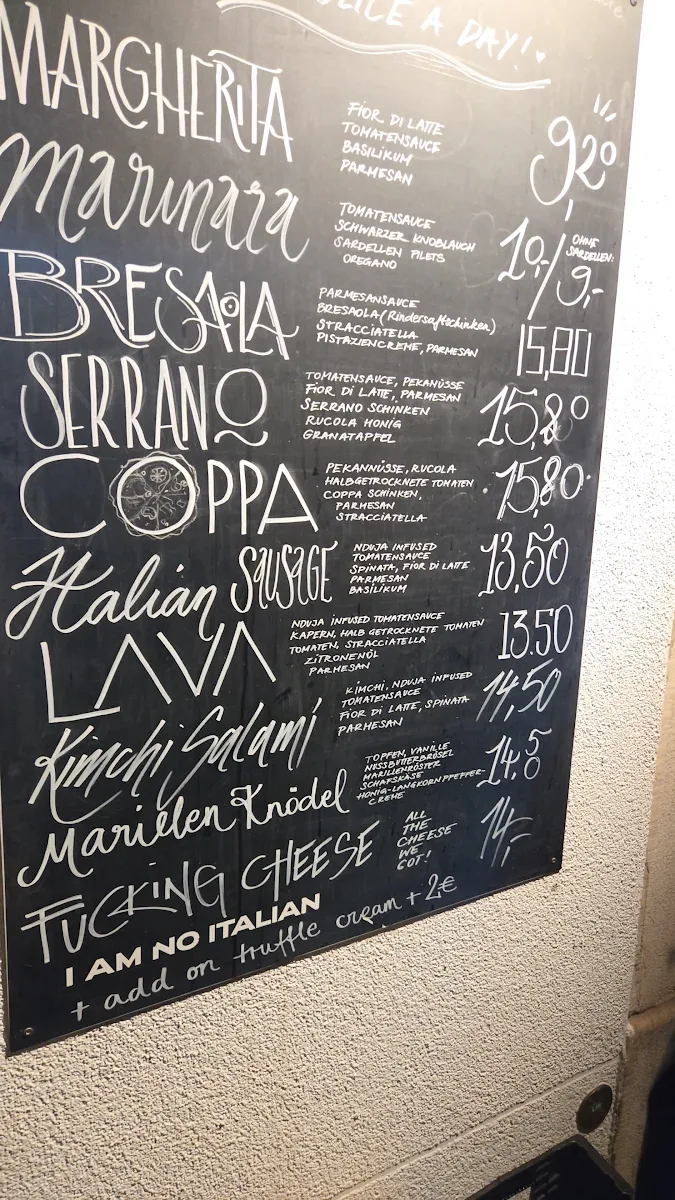 SLICE A DAY!
MARGHERITA
FIOR DI LATTE
TOMATENSAUCE
BASILIKUM
PARMESAN
9,20
Marinara
TOMATENSAUCE
SCHWARZER KNOBLAUCH
SARDELLEN FILETS
OREGANO
10,-/9,-
OHNE
SARDELLEN:
BRESAOLA
PARMESANSAUCE
BRESAOLA (Rindersaftschinken)
STRACCIATELLA
PISTAZIENCREME, PARMESAN
15,80
SERRANO
TOMATENSAUCE, PEKANÜSSE
FIOR DI LATTE, PARMESAN
SERRANO SCHINKEN
RUCOLA HONIG
GRANATAPFEL
15,80
COPPA
PEKANNÜSSE, RUCOLA
HALBGETROCKNETE TOMATEN
COPPA SCHINKEN,
PARMESAN
STRACCIATELLA
15,80
Italian SAUSAGE
NDUJA INFUSED
TOMATENSAUCE
SPINATA, FIOR DI LATTE
PARMESAN
BASILIKUM
13,50
LAVA
NDUJA INFUSED TOMATENSAUCE
KAPERN, HALB GETROCKNETE TOMATEN
TOMATEN, STRACCIATELLA
ZITRONENÖL
PARMESAN
13.50
Kimchi Salami
KIMCHI, NDUJA INFUSED
TOMATENSAUCE
FIOR DI LATTE, SPINATA
PARMESAN
14,50
Marillen Knödel
TOPFEN, VANILLE
NUSSBUTTERBRÖSEL
MARILLENRÖSTER
SCHAFSKÄSE
HONIG-LANGKORNPFEFFER-
CREME
14,50
FUCKING CHEESE
ALL
THE
CHEESE
WE
GOT!
14,-
I AM NO ITALIAN
+ add on truffle cream + 2€